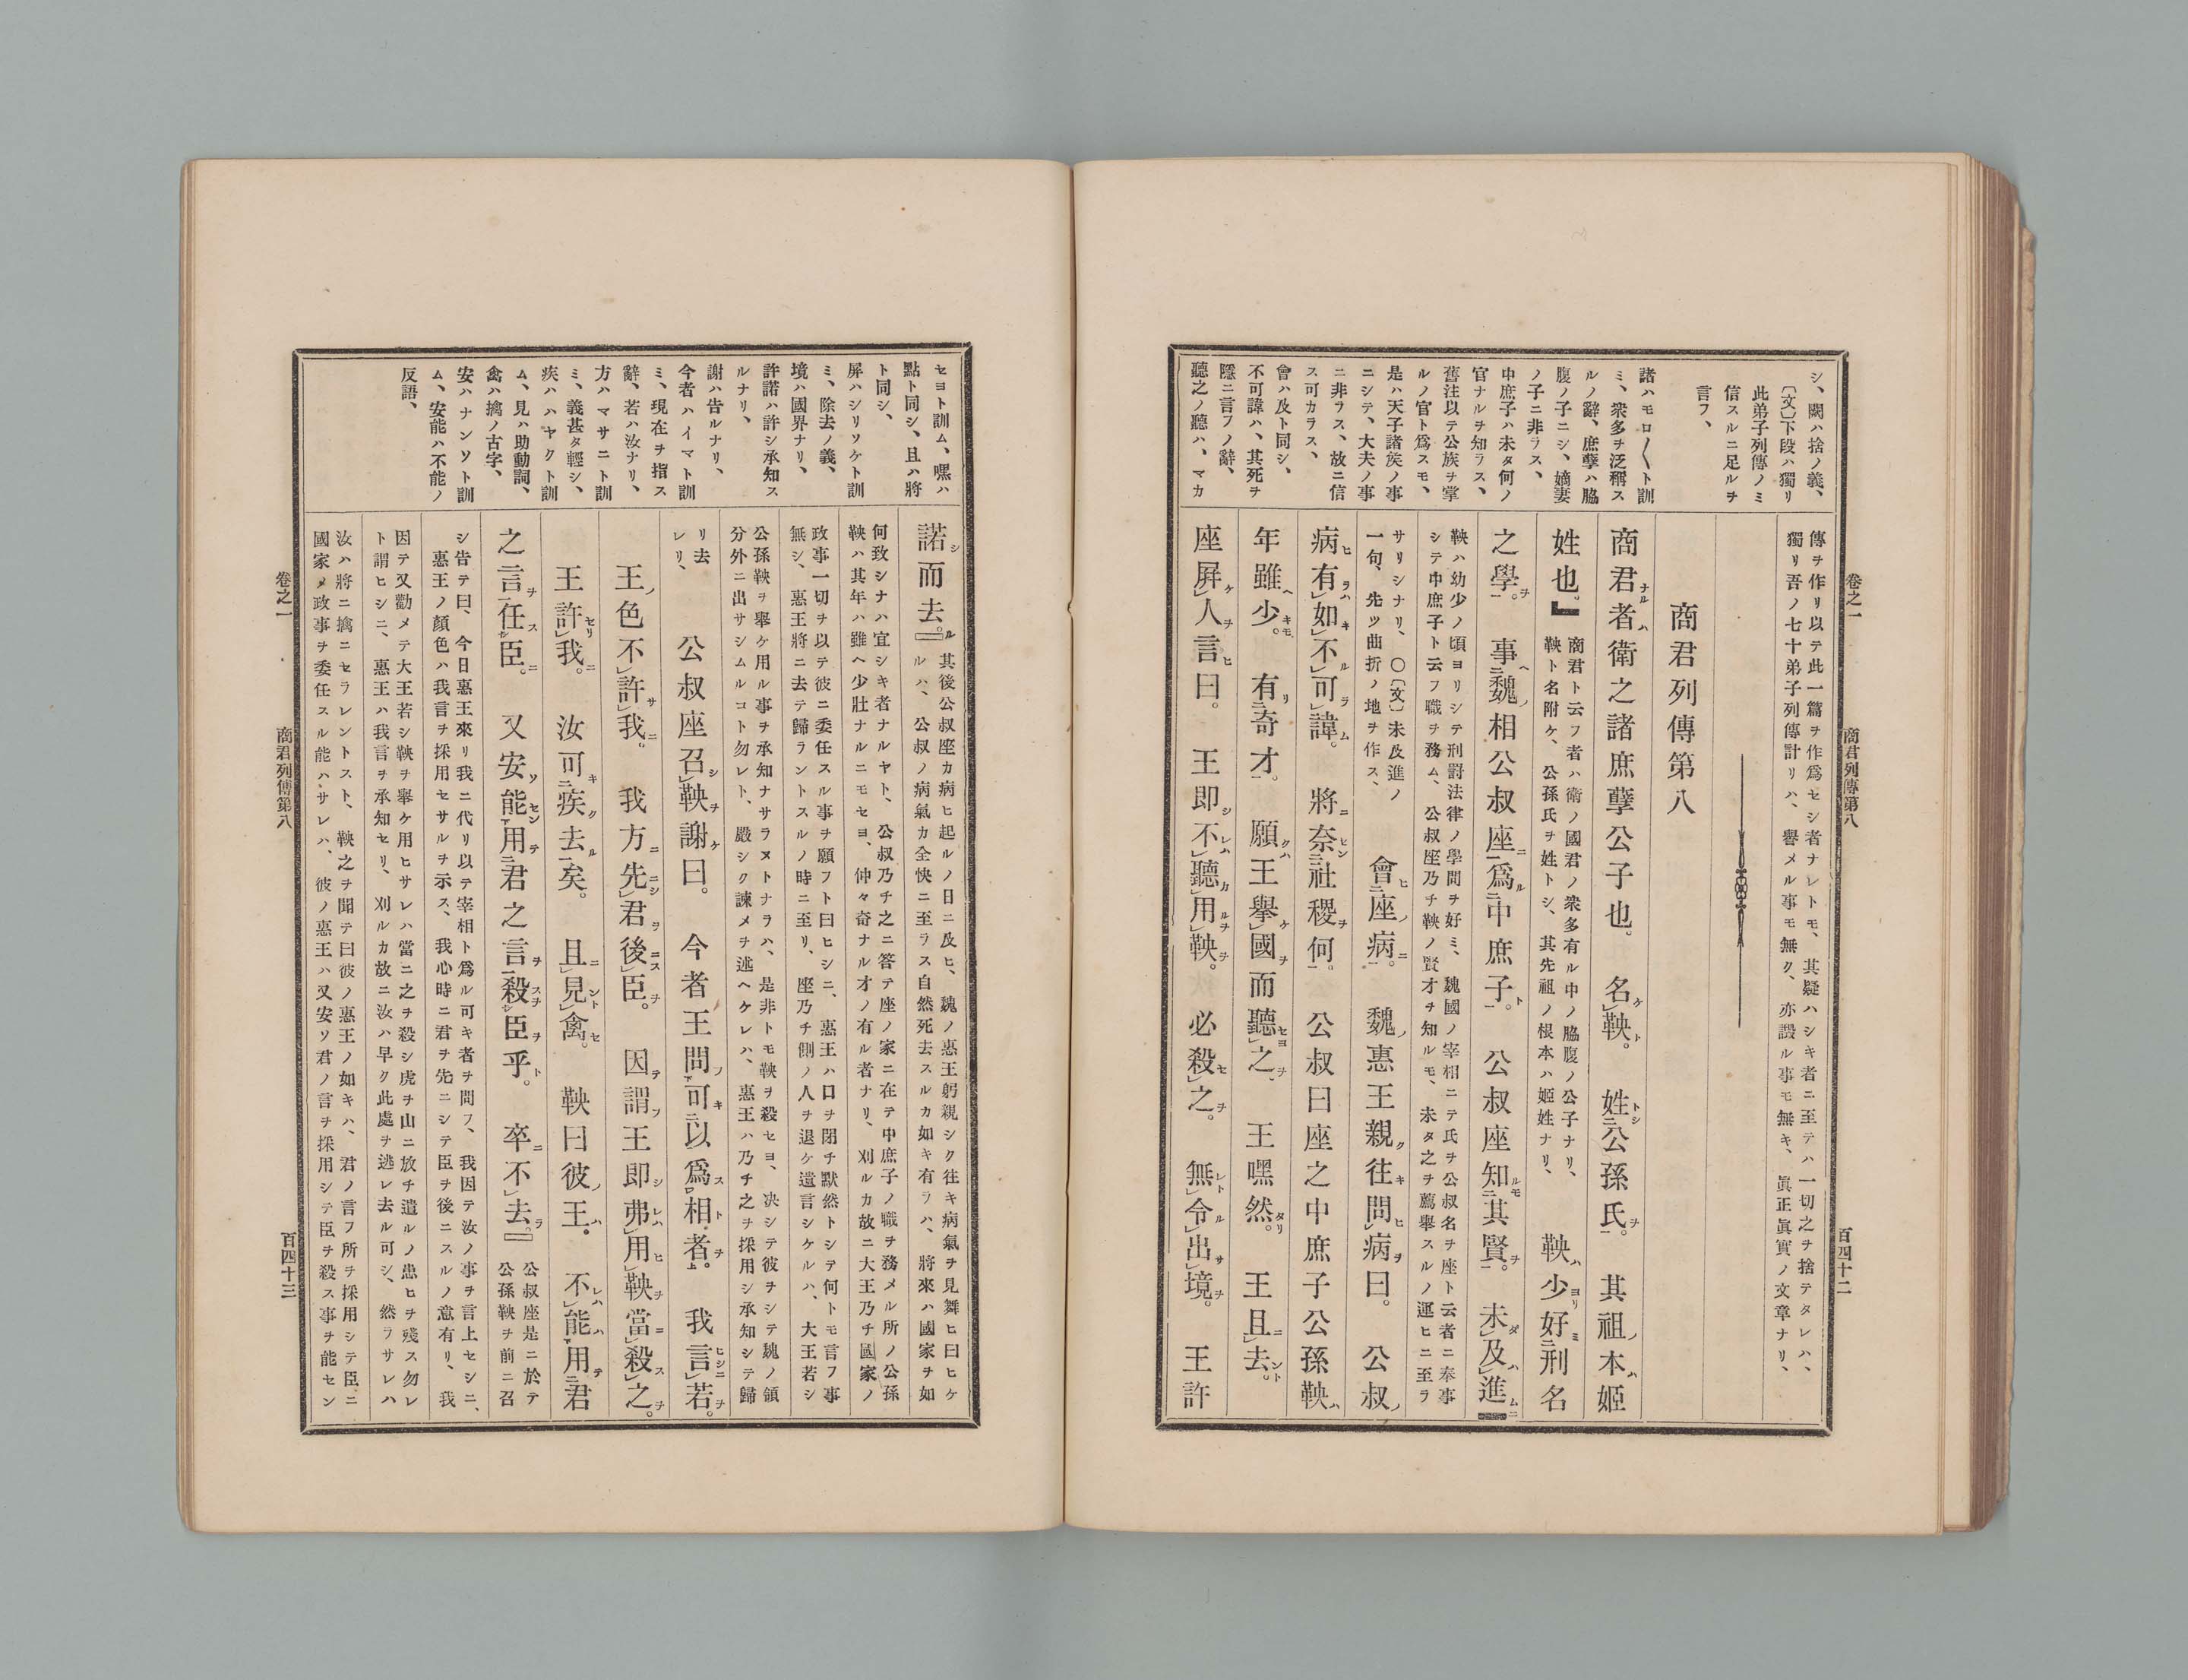 卷之一 商君列傳第八 百四十二
シ、闕ハ捨ノ義、
〔文〕下段ハ獨リ
此弟子列傳ノミ
信スルニ足ルヲ
言フ、
諸ハモロ〱ト訓
ミ、衆多ヲ泛稱ス
ルノ辭、庶孽ハ脇
腹ノ子ニシ、嫡妻
ノ子ニ非ラス、
中庶子ハ未タ何ノ
官ナルヲ知ラス、
舊注以テ公族ヲ掌
ルノ官ト爲スモ、
是ハ天子諸矦ノ事
ニシテ、大夫ノ事
ニ非ラス、故ニ信
ス可カラス、
會ハ及ト同シ、
不可諱ハ、其死ヲ
隱ニ言フノ辭、
聽之ノ聽ハ、マカ
傳ヲ作リ以テ此一篇ヲ作爲セシ者ナレトモ、其疑ハシキ者ニ至テハ一切之ヲ捨テタレハ、
獨リ吾ノ七十弟子列傳計リハ、譽メル事モ無ク、亦譭ル事モ無キ、眞正眞實ノ文章ナリ、
商君列傳第八
商君者ナルハ衛之諸庶孽公子也。名ケ鞅ト。姓トシ公孫氏ヲ。其祖ノ本ハ姬
姓也。』商君ト云フ者ハ衛ノ國君ノ衆多有ル中ノ脇腹ノ公子ナリ、
鞅ト名附ケ、公孫氏ヲ姓トシ、其先祖ノ根本ハ姬姓ナリ、
鞅ハ少ヨリ好ミ刑名
之學ヲ。事ヘ魏ノ相公叔座ニ爲ル中庶子ト。公叔座知ルモ其賢ヲ。未ダ及ハ進ムニ
鞅ハ幼少ノ頃ヨリシテ刑罸法律ノ學問ヲ好ミ、魏國ノ宰相ニテ氏ヲ公叔名ヲ座ト云者ニ奉事
シテ中庶子ト云フ職ヲ務ム、公叔座乃チ鞅ノ賢才ヲ知ルモ、未タ之ヲ薦舉スルノ運ヒニ至ラ
サリシナリ、〇〔文〕未及進ノ
一句、先ツ曲折ノ地ヲ作ス、
會ヒ座ノ病ニ。魏ノ惠王親ク往キ問ヒ病ヲ曰。公叔ノ
病ヒ有ラハ如キ不ル可ラ諱ム。將ニ奈ヒン社稷ヲ何。公叔曰座之中庶子公孫鞅ハ
年雖ヘ少キモ。有リ奇才。願クハ王擧ケ國ヲ而聽セヨ之ヲ、王嘿然タリ。王且ニ去ント。
座屛ケ人ヲ言ヒ曰。王即シ不レハ聽カ用ルヲ鞅ヲ。必殺セ之ヲ。無レト令ル出サ境ヲ。王許
卷之一 商君列傳第八 百四十三
セヨト訓ム、嘿ハ
點ト同シ、且ハ將
ト同シ、
屛ハシリソケト訓
ミ、除去ノ義、
境ハ國界ナリ、
許諾ハ許シ承知ス
ルナリ、
謝ハ告ルナリ、
今者ハイマト訓
ミ、現在ヲ指ス
辭、若ハ汝ナリ、
方ハマサニト訓
ミ、義甚タ輕シ、
疾ハハヤクト訓
ム、見ハ助動詞、
禽ハ擒ノ古字、
安ハナンソト訓
ム、安能ハ不能ノ
反語、
諾シ而去ル。』其後公叔座カ病ヒ起ルノ日ニ及ヒ、魏ノ惠王躬親シク往キ病氣ヲ見舞ヒ曰ヒケ
ルハ、公叔ノ病氣カ全快ニ至ラス自然死去スルカ如キ有ラハ、將來ハ國家ヲ如
何致シナハ宜シキ者ナルヤト、公叔乃チ之ニ答テ座ノ家ニ在テ中庶子ノ職ヲ務メル所ノ公孫
鞅ハ其年ハ雖ヘ少壯ナルニモセヨ、仲々奇ナル才ノ有ル者ナリ、刈ルカ故ニ大王乃チ國家ノ
政事一切ヲ以テ彼ニ委任スル事ヲ願フト曰ヒシニ、惠王ハ口ヲ閉チ默然トシテ何トモ言フ事
無シ、惠王將ニ去テ歸ラントスルノ時ニ至リ、座乃チ側ノ人ヲ退ケ遺言シケルハ、大王若シ
公孫鞅ヲ舉ケ用ル事ヲ承知ナサラヌトナラハ、是非トモ鞅ヲ殺セヨ、决シテ彼ヲシテ魏ノ領
分外ニ出サシムルコト勿レト、嚴シク諫メヲ述ヘケレハ、惠王ハ乃チ之ヲ採用シ承知シテ歸
リ去
レリ、
公叔座召シ鞅ヲ謝ケ曰。今者王問フ可キ以爲ス相ト者ヲ。我言ヒシニ若ヲ。
王ノ色不許サ我ニ。我方ニ先ニシ君ヲ後ニス臣ヲ。因テ謂フ王即シ弗レハ用ヒ鞅ヲ當ニ殺ス之ヲ。
王許セリ我ニ。汝可キ疾ク去ル矣。且ニ見ント禽セ。鞅曰彼ノ王ハ。不レハ能ハ用テ君
之言ヲ任ス臣ニ。又安ソ能セン用テ君之言ヲ殺スヲ臣ヲ乎ト。卒ニ不去ラ。』公叔座是ニ於テ
公孫鞅ヲ前ニ召
シ告テ曰、今日惠王來リ我ニ代リ以テ宰相ト爲ル可キ者ヲ問フ、我因テ汝ノ事ヲ言上セシニ、
惠王ノ顏色ハ我言ヲ採用セサルヲ示ス、我心時ニ君ヲ先ニシテ臣ヲ後ニスルノ意有リ、我
因テ又勸メテ大王若シ鞅ヲ舉ケ用ヒサレハ當ニ之ヲ殺シ虎ヲ山ニ放チ遣ルノ患ヒヲ殘ス勿レ
ト謂ヒシニ、惠王ハ我言ヲ承知セリ、刈ルカ故ニ汝ハ早ク此處ヲ逃レ去ル可シ、然ラサレハ
汝ハ將ニ擒ニセラレントスト、鞅之ヲ聞テ曰彼ノ惠王ノ如キハ、君ノ言フ所ヲ採用シテ臣ニ
國家ノ政事ヲ委任スル能ハサレハ、彼ノ惠王ハ又安ソ君ノ言ヲ採用シテ臣ヲ殺ス事ヲ能セン